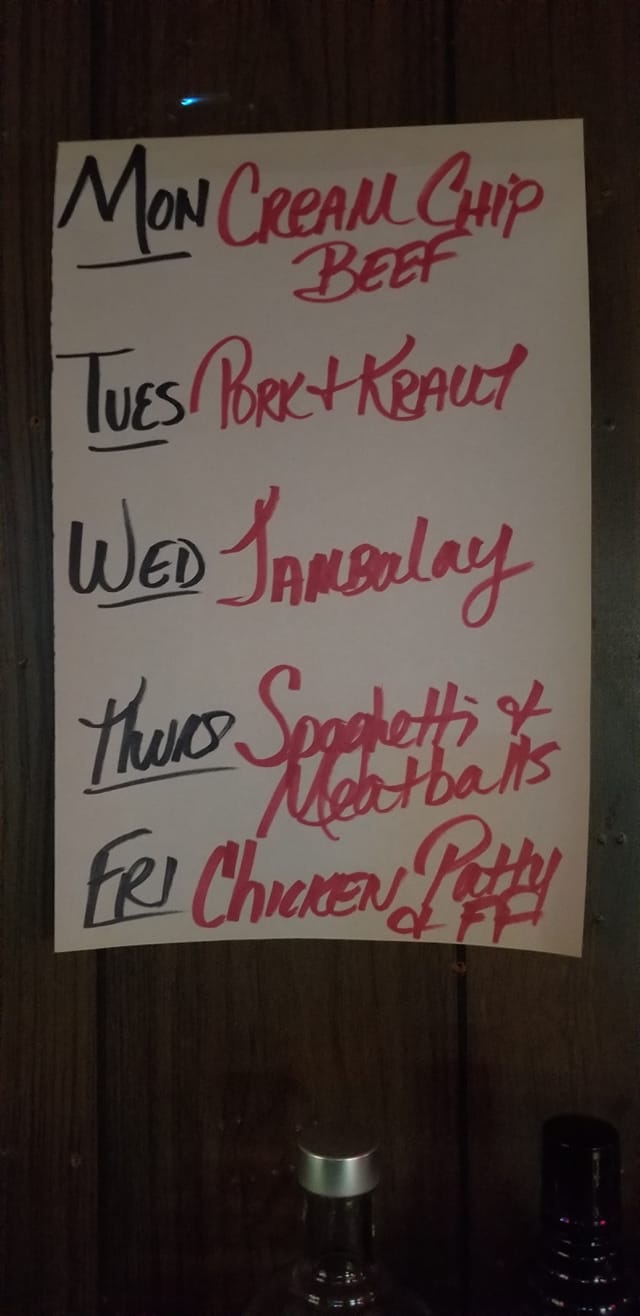 Mon Cream Chip
Beef
Tues Pork + Kraut
Wed Jambalay
Thurs Spaghetti &
Meatballs
Fri Chicken Patty
& FF